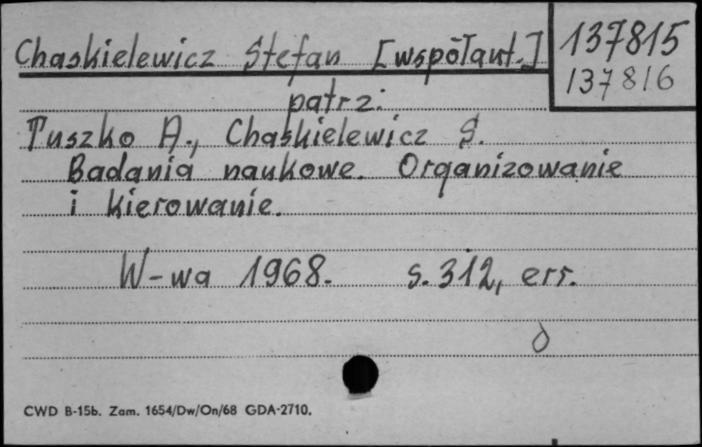 Chaskielewicz Stefan [współaut.]
137815
137816
patrz:
Tuszko A., Chaskielewicz S.
Badania naukowe. Organizowanie
i kierowanie.
W-wa 1968. s. 312, err.
CWD B-15b. Zam. 1654/Dw/On/68 GDA-2710.